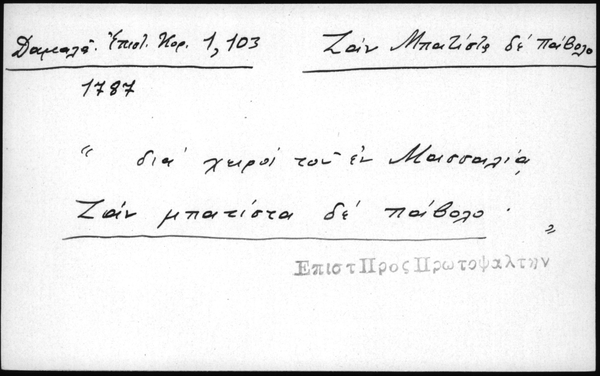 Δαμαλᾶ. Ἐπιστ. Κορ. 1, 103
Ζάν Μπατίστα δέ Πάβολο
1787
“ διά χειρός τοῦ ἐν Μασσαλίᾳ
Ζάν μπατίστα δέ πάβολο . ”
ΕπιστΠροςΠρωτοψαλτην